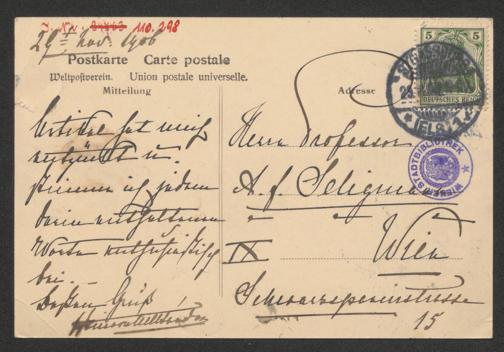 J. N. 110.298
29ᵗ Nov. 1906
Postkarte Carte postale
Weltpostverein. Union postale universelle.
Mitteilung
Adresse
5 5
DEUTSCHES REICH
WIENER STADTBIBLIOTHEK
Artikel hat mich
entzückt u.
stimme ich jedem
darin enthaltenen
Worte enthusiastisch
bei.
Besten Gruß
Herrn Professor
A. F. Seligmann
IX Wien
Schwarzspanierstrasse
15